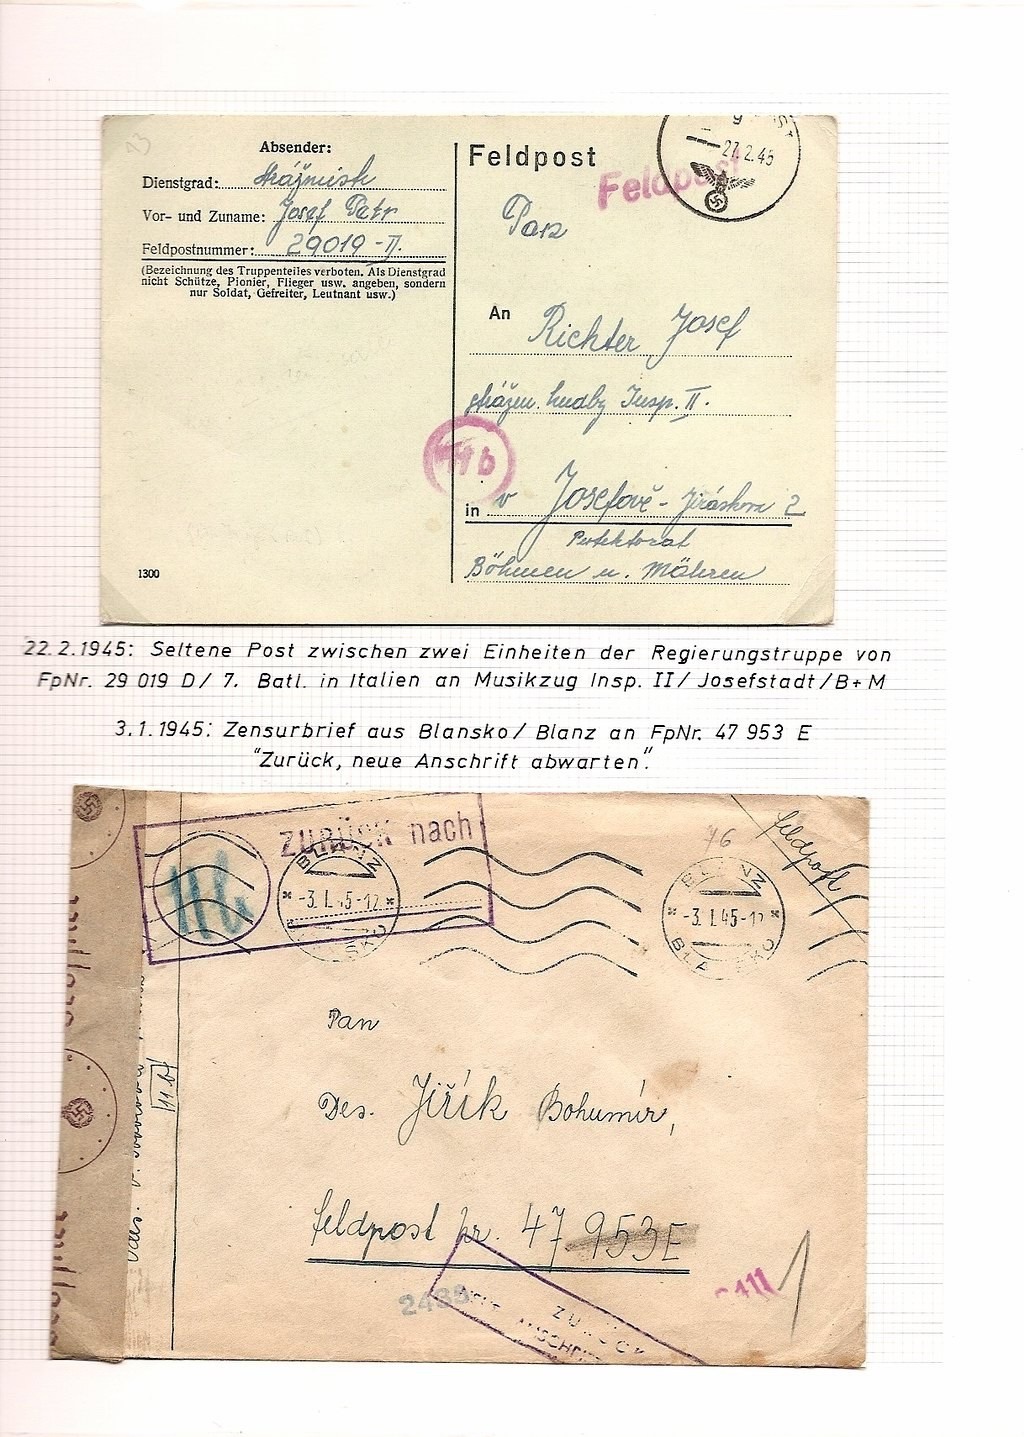 Absender:
Dienstgrad: strážmistr
Vor- und Zuname: Josef Petr
Feldpostnummer: 29019-II.
(Bezeichnung des Truppenteiles verboten. Als Dienstgrad
nicht Schütze, Pionier, Flieger usw. angeben, sondern
nur Soldat, Gefreiter, Leutnant usw.)
1300
Feldpost
Feldpost
27.2.45
Pan
An Richter Josef
strážm. hudby Insp. II.
11b
in v Josefově - Jiráskova 2
Protektorat
Böhmen u. Mähren
22.2.1945: Seltene Post zwischen zwei Einheiten der Regierungstruppe von
FpNr. 29 019 D/ 7. Batl. in Italien an Musikzug Insp. II/ Josefstadt/B+M
3.1.1945: Zensurbrief aus Blansko/ Blanz an FpNr. 47 953 E
"Zurück, neue Anschrift abwarten".
Zurück nach
BLANZ
-3.I.45-12
BLANZ
-3.I.45-12
BLANSKO
Feldpost
Geöffnet
Geöffnet
Pan
Des. Jiřík Bohumír,
Feldpost nr. 47 953E
2411
ZURÜCK